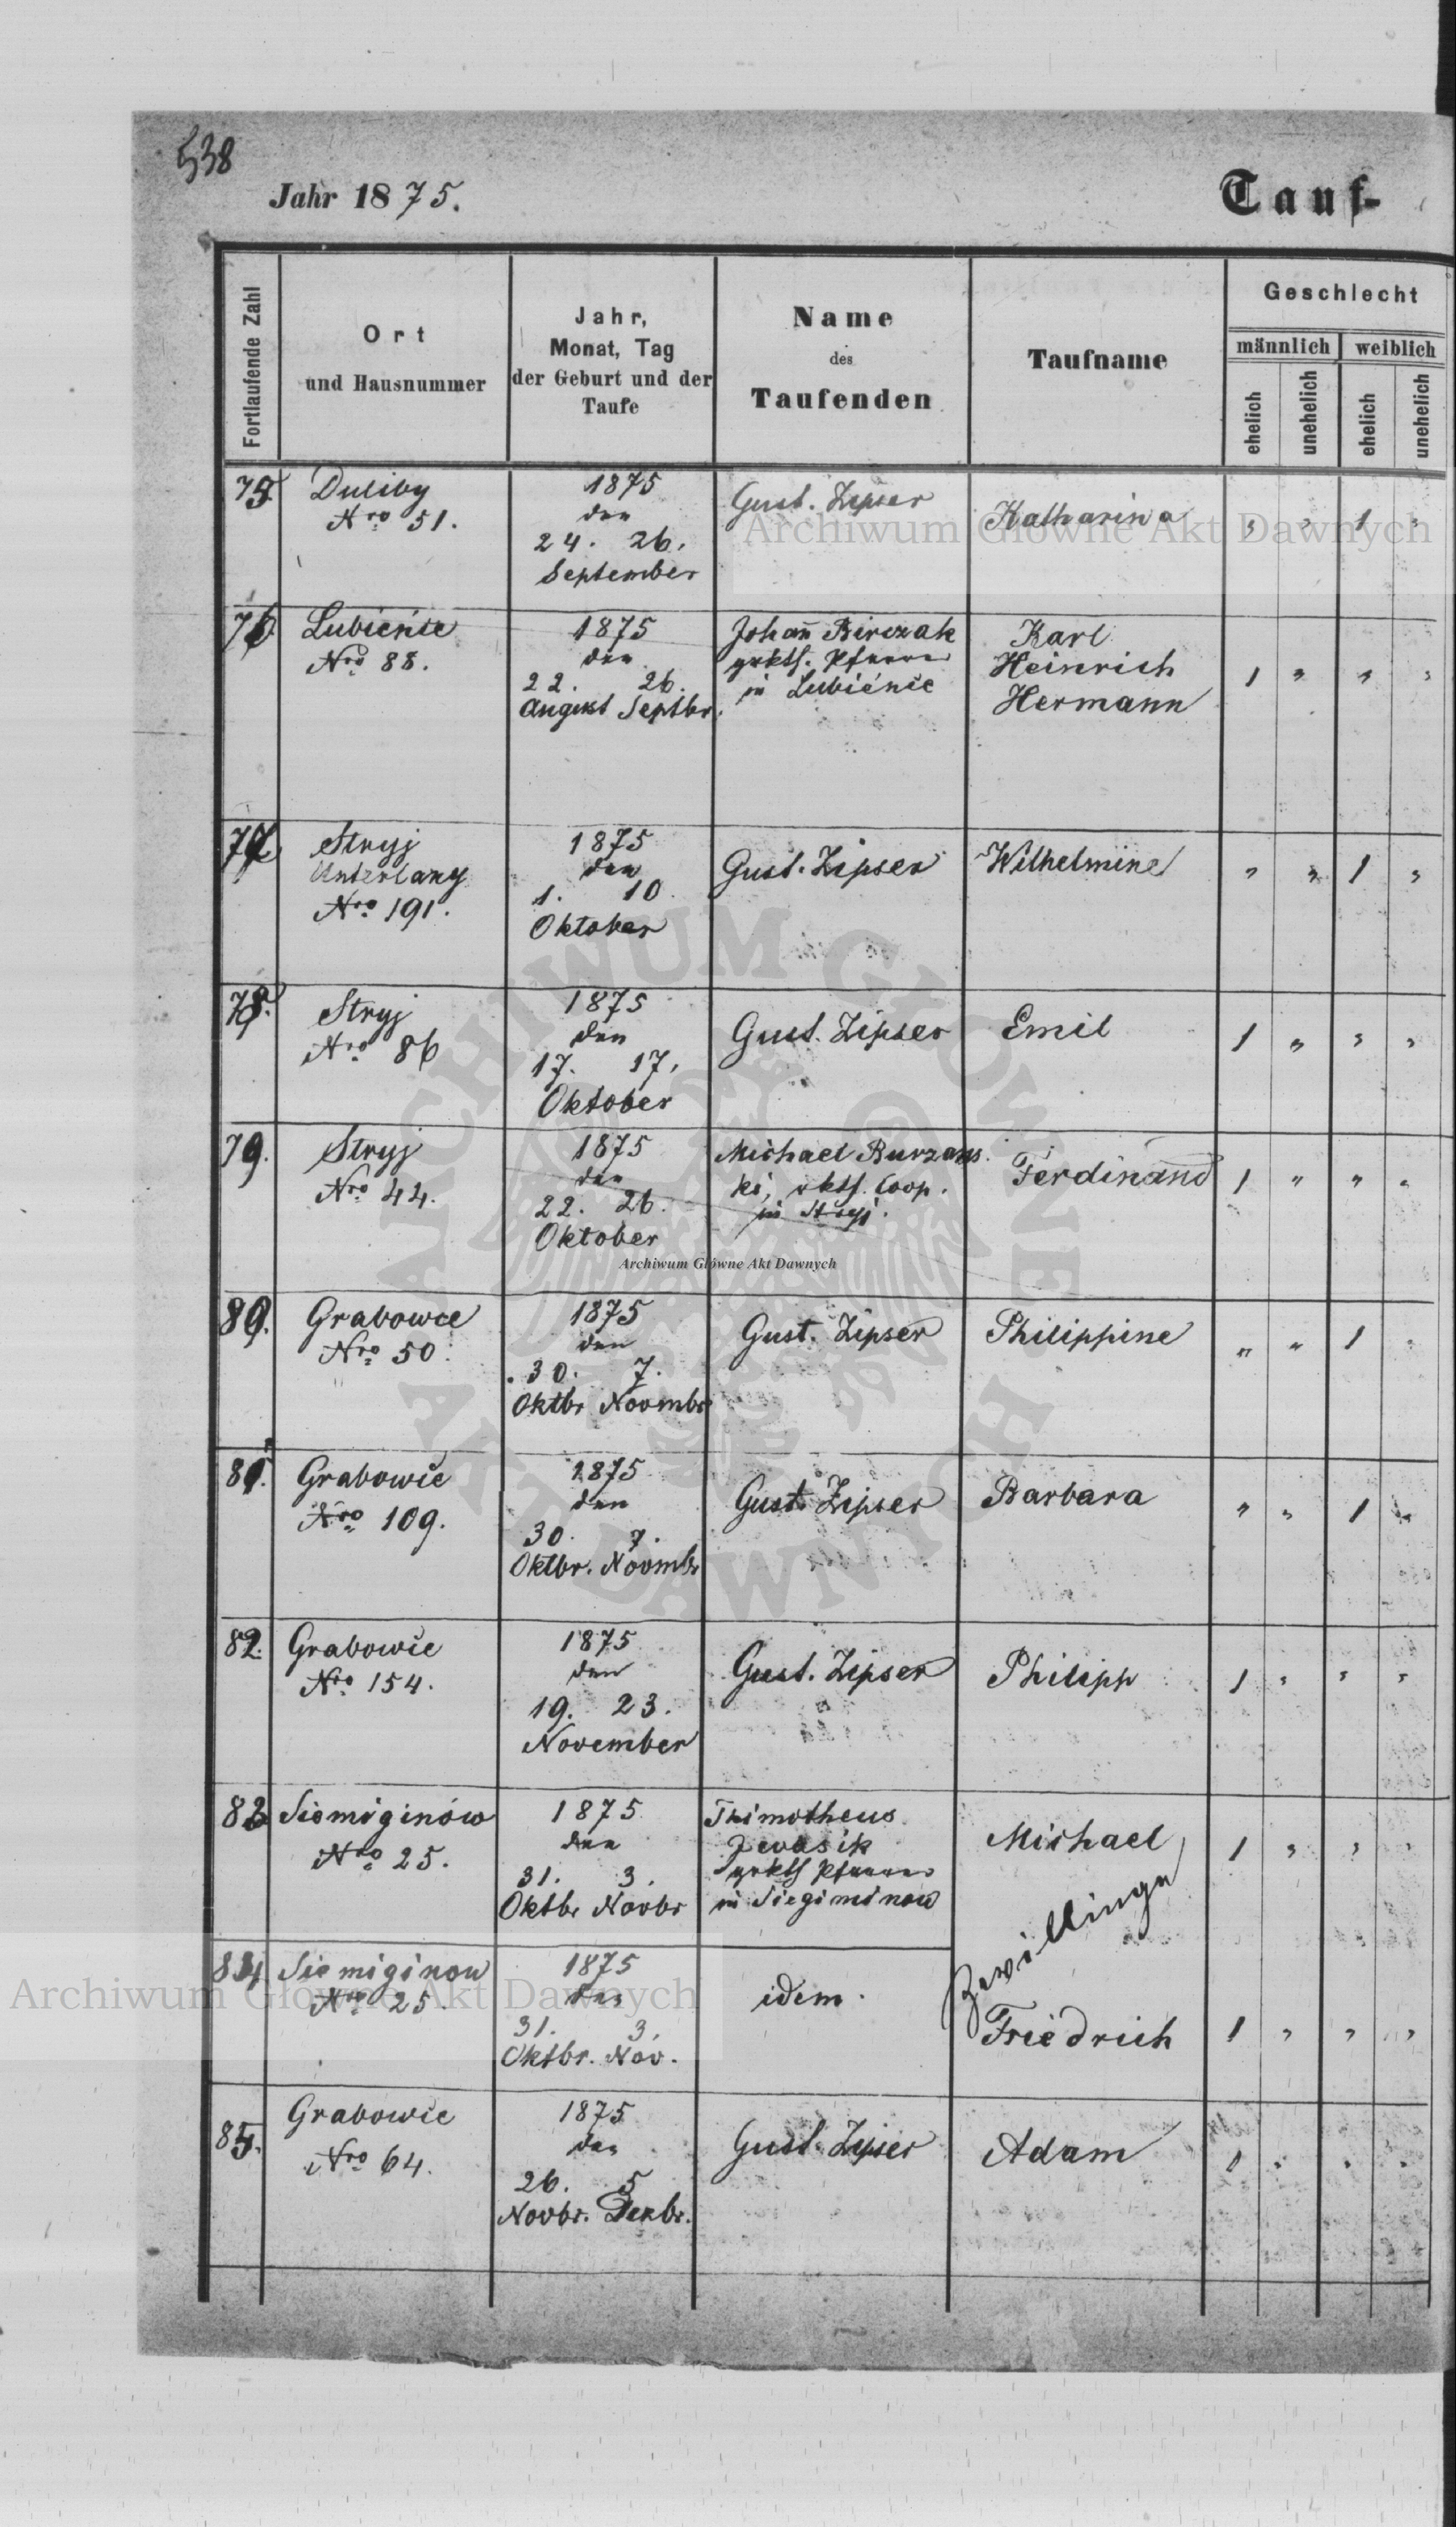 538
Jahr 1875.
Tauf-
Fortlaufende Zahl
Ort
und Hausnummer
Jahr,
Monat, Tag
der Geburt und der
Taufe
Name
des
Taufenden
Taufname
Geschlecht
männlich
weiblich
ehelich
unehelich
ehelich
unehelich
75
Duliby
Nro 51.
1875
den
24. 26.
September
Gust. Zipser
Katharina
" " 1 "
76
Lubieńce
Nro 88.
1875
den
22. 26.
August Septbr.
Johañ Birczak
grkth. Pfarrer
in Lubieńce
Karl
Heinrich
Hermann
1 " " "
77
Stryj
Unterlany
Nro 191.
1875
den
1. 10
Oktober
Gust. Zipser
Wilhelmine
" " 1 "
78.
Stryj
Nro 86
1875
den
17. 17.
Oktober
Gust. Zipser
Emil
1 " " "
79.
Stryj
Nro 44.
1875
den
22. 26.
Oktober
Michael
ki, rkth. Coop.
in Stryj.
Ferdinand
1 " " "
80.
Grabowce
Nro 50.
1875
den
30. 7.
Oktbr Novmbr
Gust. Zipser
Philippine
" " 1 "
81.
Grabowce
Nro 109.
1875
den
30. 7.
Oktbr. Novmbr
Gust. Zipser
Barbara
" " 1 "
82.
Grabowce
Nro 154.
1875
den
19. 23.
November
Gust. Zipser
Philipp
1 " " "
83
Siemiginów
Nro 25.
1875
den
31. 3.
Oktbr Novbr
Thimotheus
grkth Pfarrer
in Siegiminow
Michael
1 " " "
Zwillinge
84
Siemiginow
Nro 25.
1875
den
31. 3.
Oktbr. Nov.
idem.
Friedrich
1 " " "
85.
Grabowce
Nro 64.
1875
den
26. 5
Novbr. Dezbr.
Gust. Zipser
Adam
1 " " "
Archiwum Główne Akt Dawnych
Archiwum Główne Akt Dawnych
Archiwum Główne Akt Dawnych
ARCHIWUM GŁÓWNE
AKT DAWNYCH